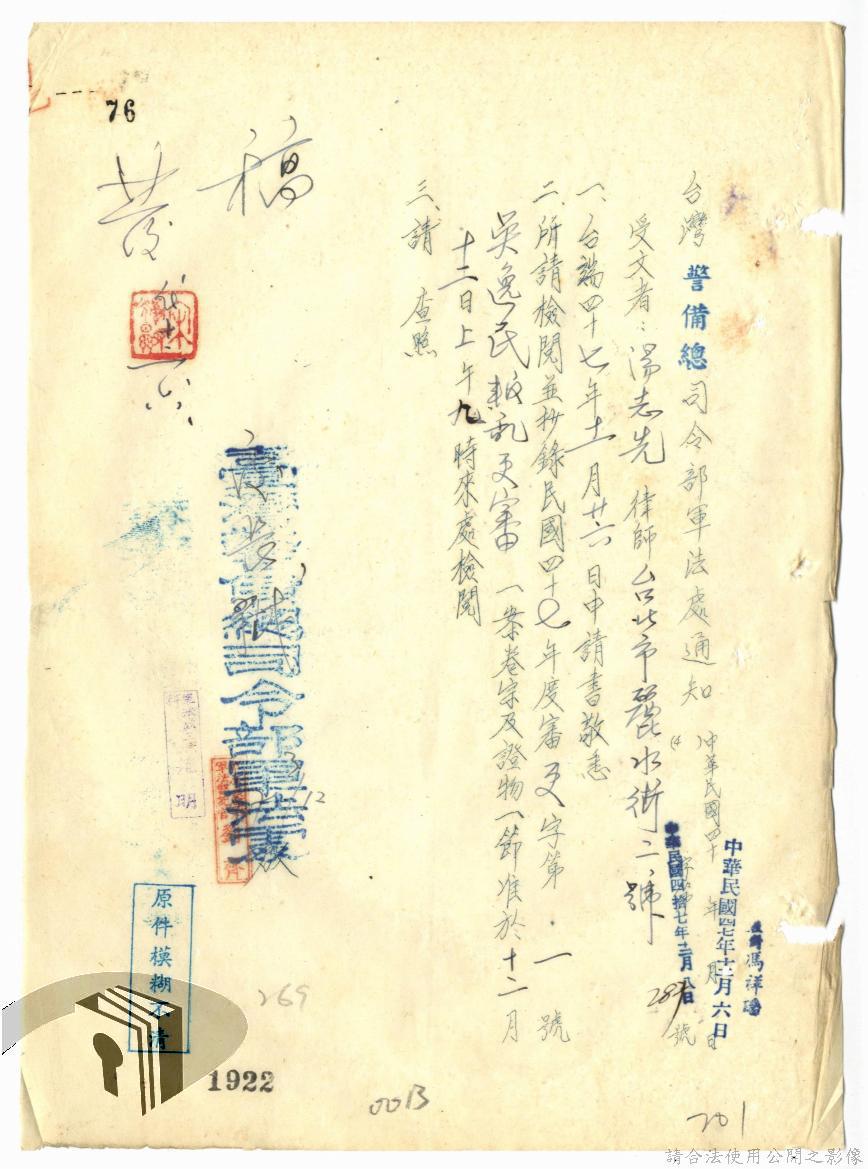 台灣警備總司令部軍法處通知
中華民國四十 年 月 日
字第 號
中華民國四七年十二月六日
中華民國四拾七年十二月八日
受文者:湯志先 律師 台北市麗水街二號
一、台端四十七年十一月廿六日申請書敬悉
二、所請檢閱並抄錄民國四十七年度審更字第 一 號
吳逸民叛乱更審 一案卷宗及證物一節准於十二月
十二日上午九時來處檢閱
三、請 查照
稿
76
原件模糊不清
269
1922
0013
201
請合法使用公開之影像